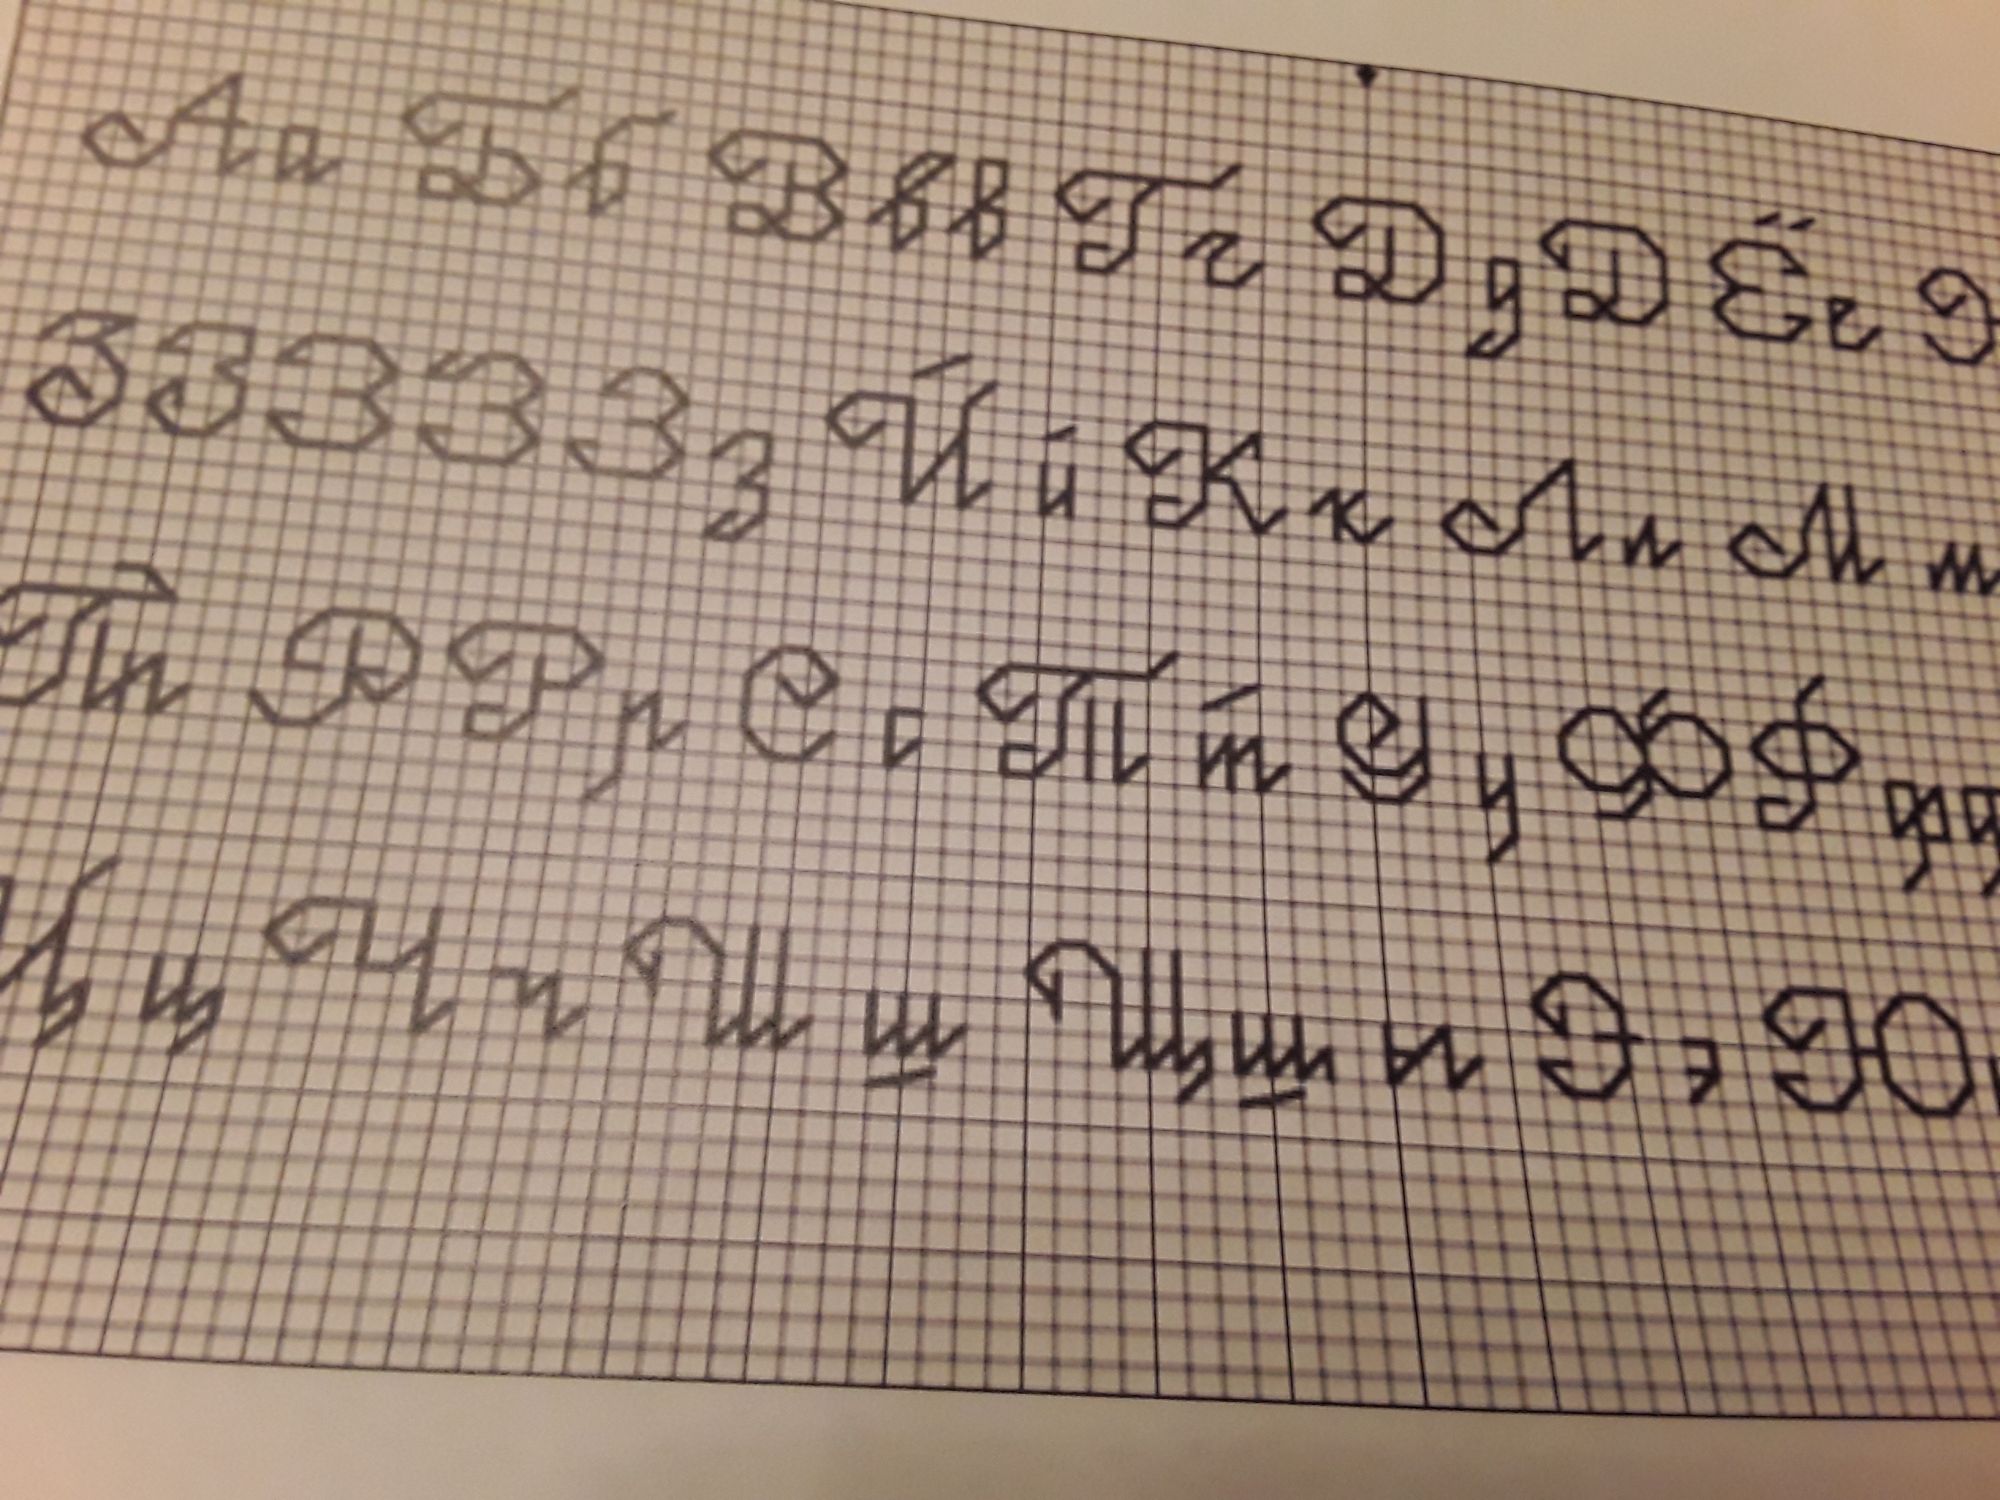 Аа Бб Ввв Гг ДдД Ёг Э
ЗЗЗЗЗз Йй Кк Лл Мм
Пп РРр Сс Тт Уу ФФфф
Цц Чч Шш Щщ ы Ээ Ю